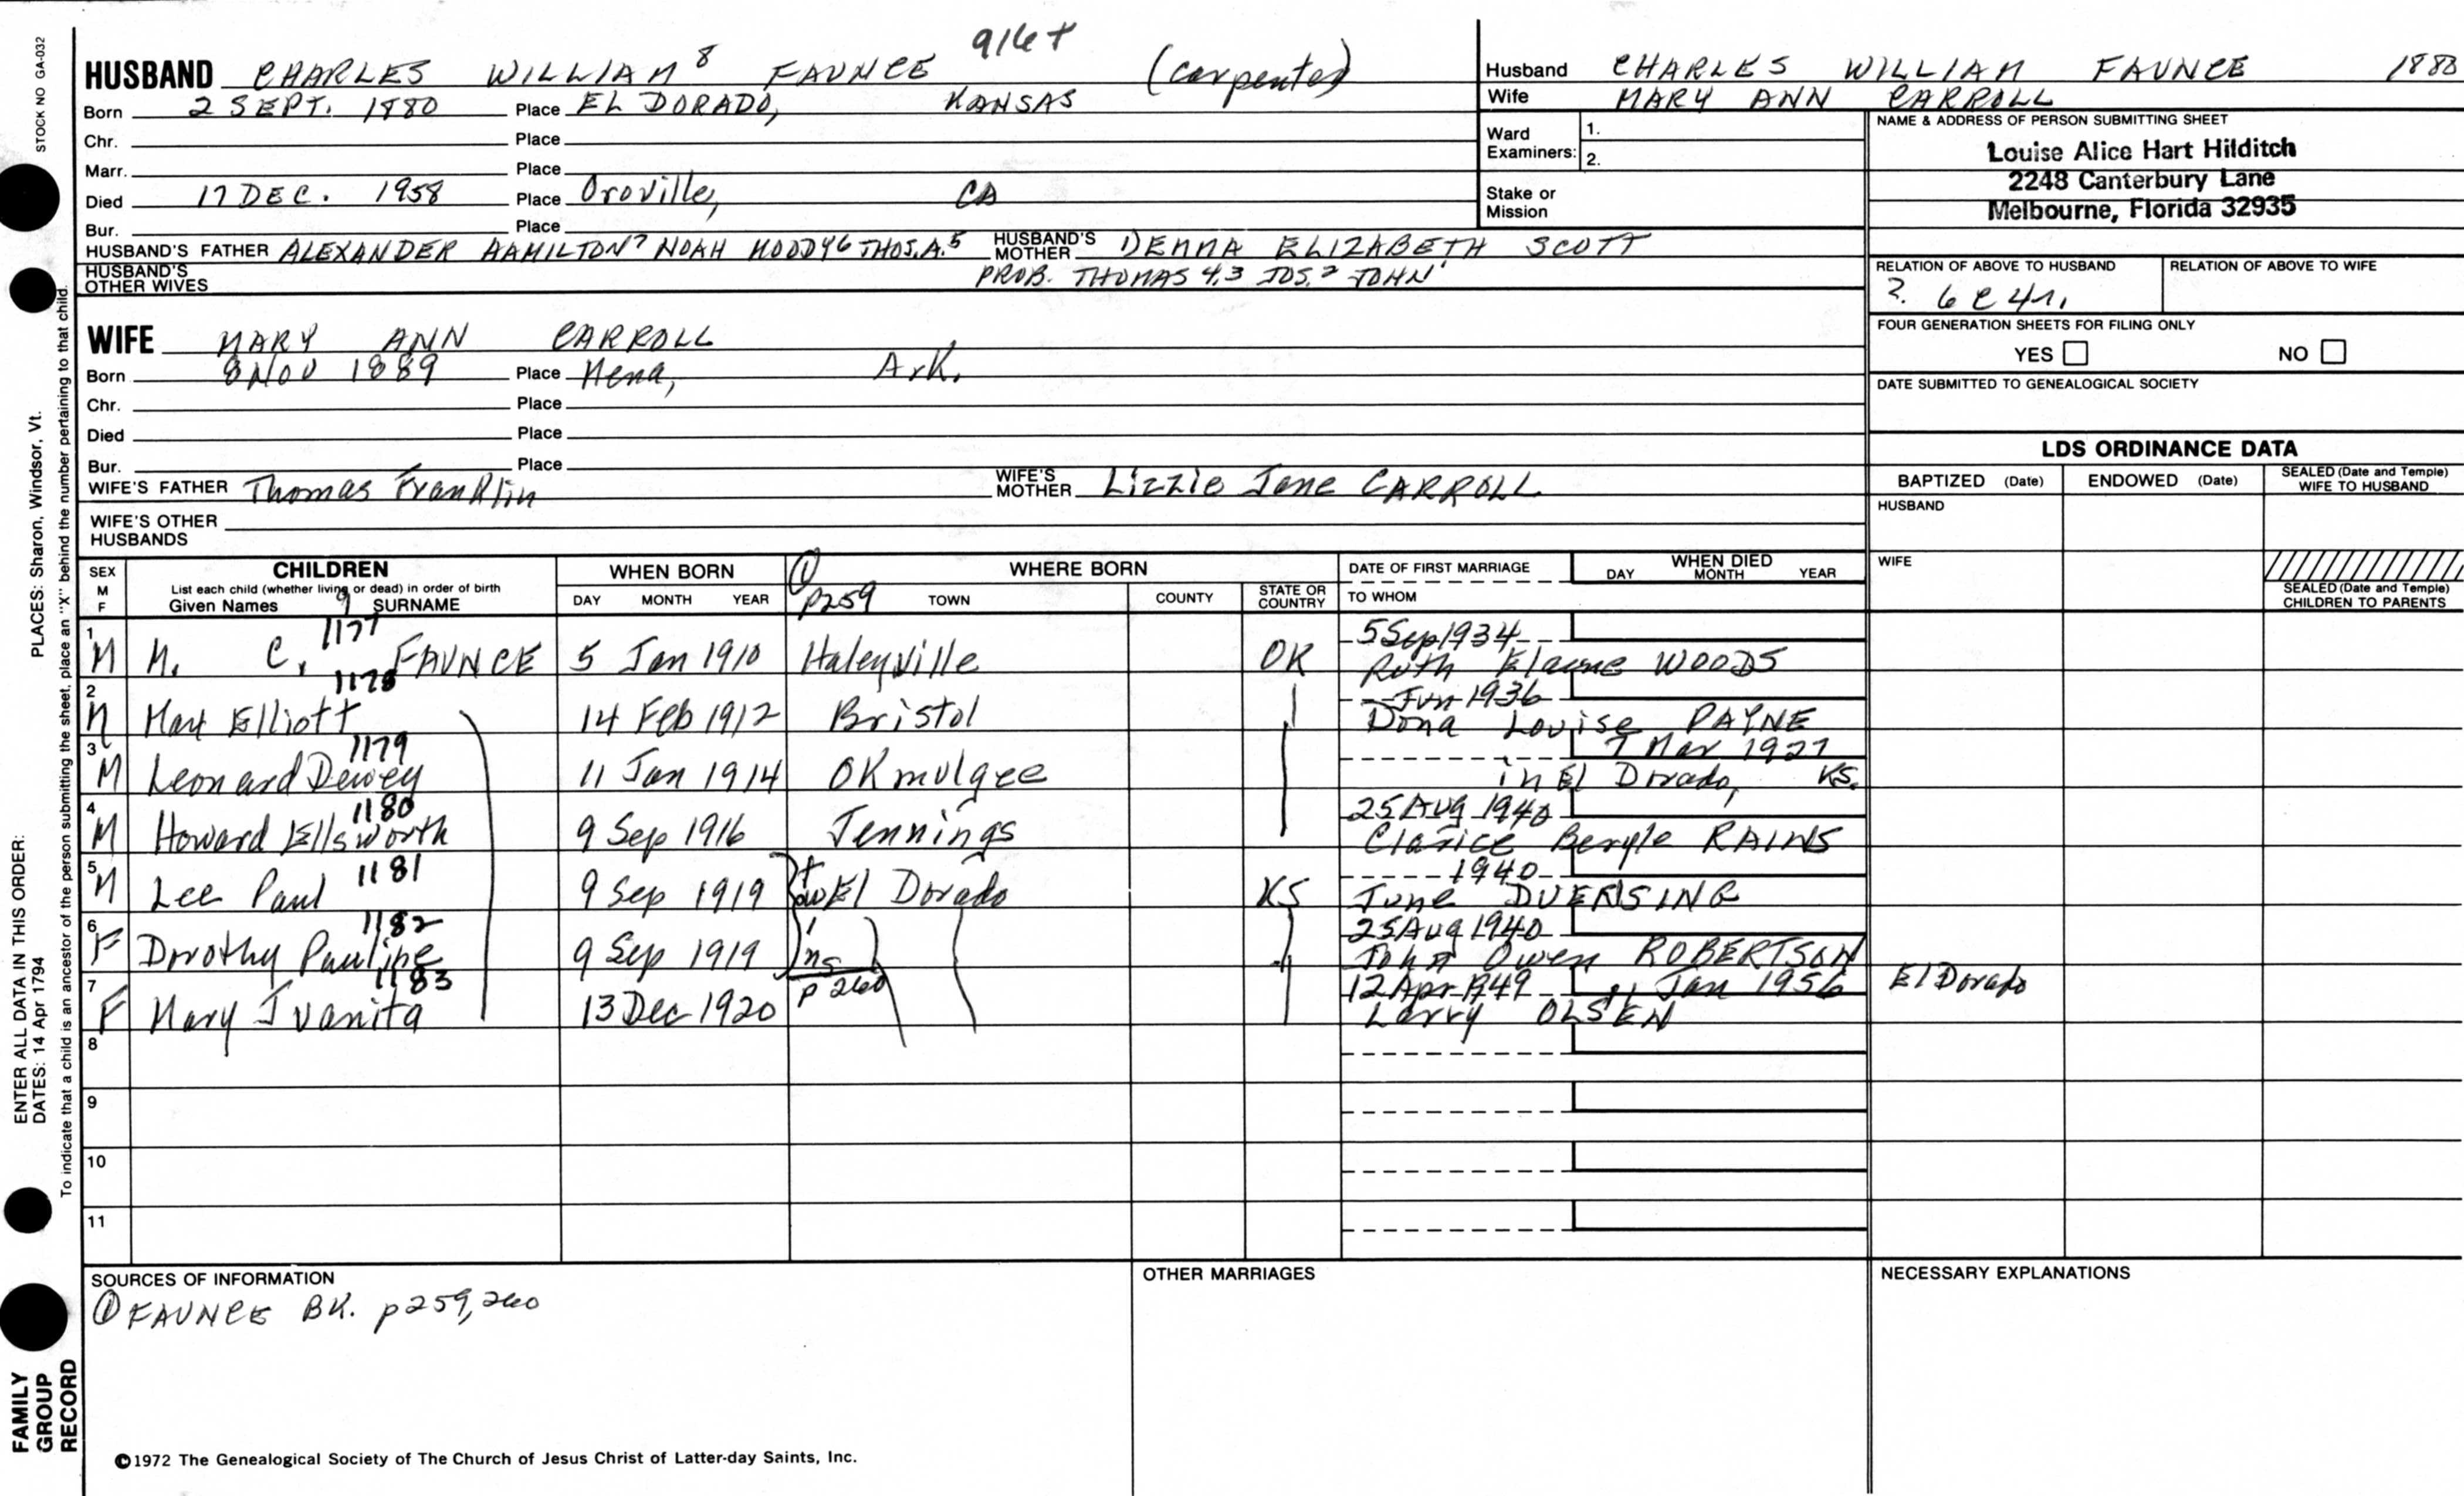 STOCK NO GA-032
916+
HUSBAND CHARLES WILLIAM 8 FAUNCE (carpenter)
Born 2 SEPT. 1880 Place EL DORADO, KANSAS
Chr. Place
Marr. Place
Died 17 DEC. 1958 Place Oroville, CA
Bur. Place
HUSBAND'S FATHER ALEXANDER HAMILTON 7 NOAH MOODY 6 THOS. A. 5 HUSBAND'S MOTHER DEMMA ELIZABETH SCOTT
HUSBAND'S OTHER WIVES PROB. THOMAS 4,3 JOS. 2 JOHN 1
WIFE MARY ANN CARROLL
Born 8 NOV 1889 Place Mena, Ark.
Chr. Place
Died Place
Bur. Place
WIFE'S FATHER Thomas Franklin WIFE'S MOTHER Lizzie Jane CARROLL
WIFE'S OTHER HUSBANDS
Husband CHARLES WILLIAM FAUNCE 1880
Wife MARY ANN CARROLL
Ward Examiners: 1.
2.
Stake or Mission
NAME & ADDRESS OF PERSON SUBMITTING SHEET
Louise Alice Hart Hilditch
2248 Canterbury Lane
Melbourne, Florida 32935
RELATION OF ABOVE TO HUSBAND RELATION OF ABOVE TO WIFE
?. 6 C 4 r.
FOUR GENERATION SHEETS FOR FILING ONLY
YES NO
DATE SUBMITTED TO GENEALOGICAL SOCIETY
LDS ORDINANCE DATA
BAPTIZED (Date) ENDOWED (Date) SEALED (Date and Temple) WIFE TO HUSBAND
HUSBAND
WIFE
SEALED (Date and Temple) CHILDREN TO PARENTS
SEX M F
CHILDREN
List each child (whether living or dead) in order of birth
Given Names 9 SURNAME
WHEN BORN
DAY MONTH YEAR
① p259
WHERE BORN
TOWN COUNTY STATE OR COUNTRY
DATE OF FIRST MARRIAGE
TO WHOM
WHEN DIED
DAY MONTH YEAR
1 M M. C. 1177 FAUNCE 5 Jan 1910 Haleyville OK 5 Sep 1934 Ruth Elaine WOODS
2 M Max Elliott 1178 14 Feb 1912 Bristol Jun 1936 Dona Louise PAYNE
3 M Leonard Dewey 1179 11 Jan 1914 OKmulgee 7 Mar 1927 in El Dorado, KS.
4 M Howard Ellsworth 1180 9 Sep 1916 Jennings 25 Aug 1940 Clarice Beryle RAINS
5 M Lee Paul 1181 9 Sep 1919 tw El Dorado KS 1940 June DUERSING
6 F Dorothy Pauline 1182 9 Sep 1919 ins 25 Aug 1940 John Owen ROBERTSON
7 F Mary Juanita 1183 13 Dec 1920 p 260 12 Apr 1949 11 Jan 1956 El Dorado Larry OLSEN
8
9
10
11
SOURCES OF INFORMATION
① FAUNCE BK. p259,260
OTHER MARRIAGES
NECESSARY EXPLANATIONS
©1972 The Genealogical Society of The Church of Jesus Christ of Latter-day Saints, Inc.
ENTER ALL DATA IN THIS ORDER:
DATES: 14 Apr 1794 PLACES: Sharon, Windsor, Vt.
To indicate that a child is an ancestor of the person submitting the sheet, place an "X" behind the number pertaining to that child.
FAMILY GROUP RECORD